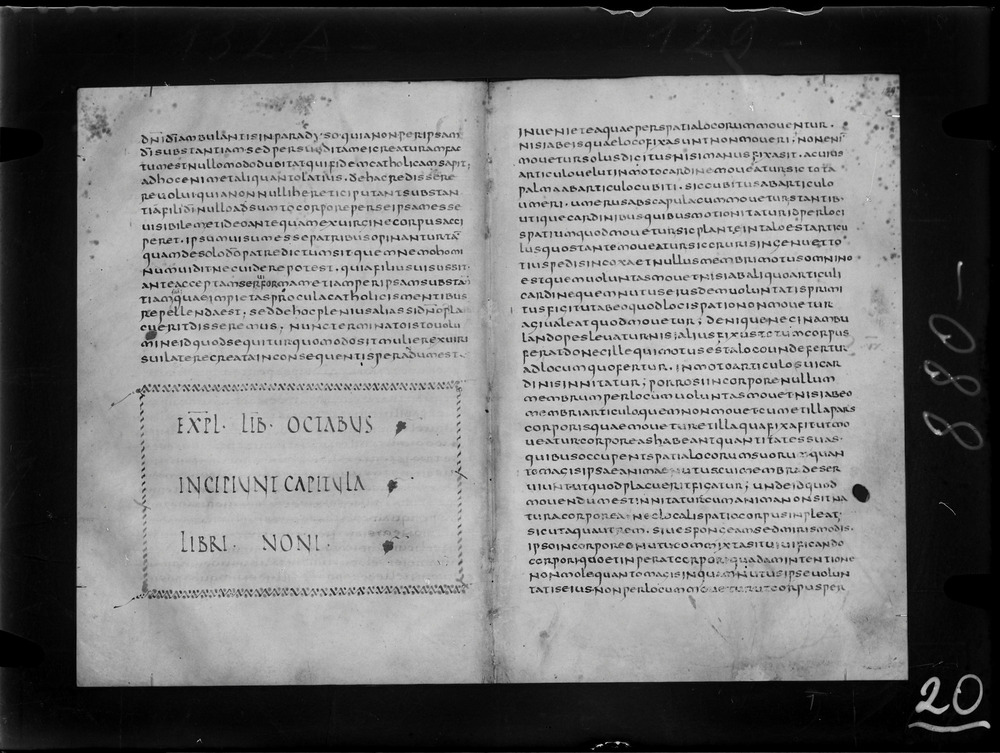 dnidiambulantisinparadysoquianonperipsam
disubstantiamsedpersubditameicreaturamfac
tumestnullomododubitatquifidemcatholicamsapit;
adhocenimetaliquantolatius.dehacredissere
revoluiquianonnullihereticiputantsubstan
tiafilidinulloadsumtocorporeperseipsamesse
visibilemetideoantequamexvirginecorpusacci
peret.ipsumvisumessepatribusopinanturtā
quamdesolodopatredictumsitquemnemohomi
numviditnecviderepotest.quiafiliusvisussit
anteacceptamserviformametiamperipsamsubstan
tiamquaeimpietasproculacatholicismentibus
repellendaest.seddehocpleniusaliassidnopla
cueritdisseremus.nuncterminatoistovolu
mineidquodsequiturquomodositmulierexviri
suilaterecreatainconsequentisperadumest.
EXPL. LIB. OCTABUS
INCIPIUNT CAPITULA
LIBRI. NONI.
invenieteaquaeperspatialocorummoventur.
nisiabeisquaelocofixasuntnonmoveri.nonenī
moveturSolusdigitusnisimanusfixasit.acuius
articulovelutinmotocardinemoveatursictota
palmaabarticulocubiti.siccubitusabarticulo
umeri.umerusabscapulacummoveturstantib·
utiquecardinibusquibusmotionitaturidperloci
spatiumquodmovetursicplanteintaloestarticu
lusquostantemoveatursiccrurisingenuetto
tiuspedisincoxaetnullusmembrimotusomnino
estquemvoluntasmovetnisiabaliquoarticuli
cardinequemnutuseiusdemvoluntatisprimi
tusfigitutabeoquodlocispationonmovetur
agivaleatquodmovetur;deniquenecinambu
landopeslevaturnisialiusfixustotumcorpus
feratdonecillequimotusestalocoundefertur
adlocumquofertur.inmotoarticulosuicar
dinisinnitatur;porrosiincorporenullum
membrumperlocumvoluntasmovetnisiabeo
membriarticuloquemnonmovetcumetillapars
corporisquaemoveturetillaquafixafitutmo
veaturcorporeashabeantquantitatessuas.
quibusoccupentspatialocorumsuorum·quan
tomagisipsaeanimaenutuscuimembradeser
viuntutquodplacueritficatur;undeidquod
movendumestinnitaturcumanimanonsitna
turacorporea·neclocalispatiocorpusinpleat·
sicutaquautrem.sivespongeamsedmirismodis.
ipsoincorporeonutucommixtasitvivificando
corporiquoetinperatcorpoриquadamintentione
nonmolequantomagisinquamnutusipsevolun
tatiseiusnonperlocummoveturutcorpusper
880-
20